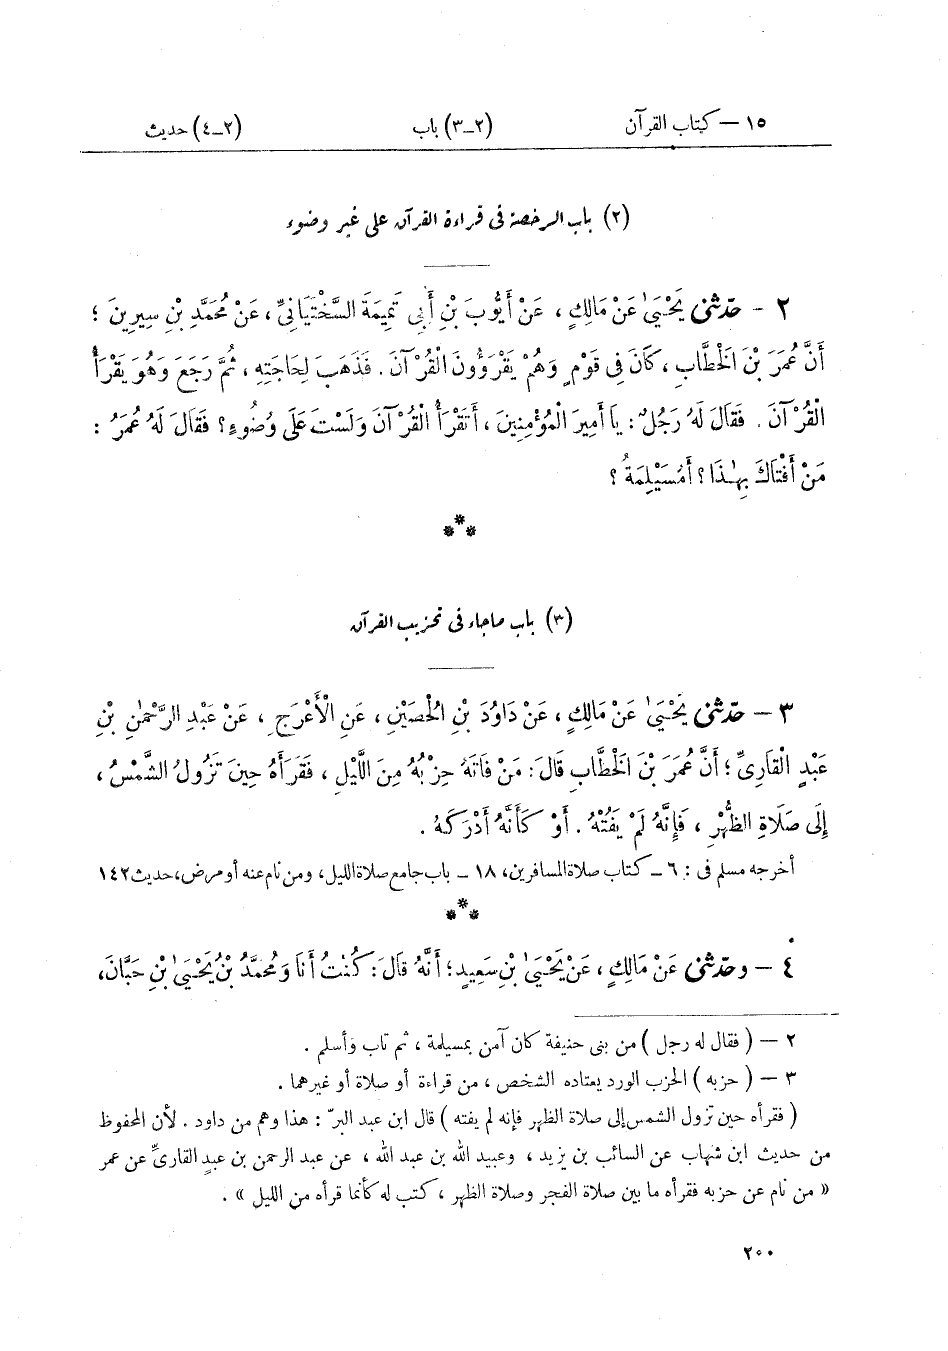 ١٥ – كتاب القرآن (٢ـ٣) باب (٢ـ٤) حديث
(٢) باب الرخصة فى قراءة القرآن على غير وضوء
٢ – حدّثنى يَحْيَىٰ عَنْ مَالِكٍ، عَنْ أَيُّوبَ بْنِ أَبِى تَمِيمَةَ السَّخْتِيَانِيِّ، عَنْ مُحَمَّدِ بْنِ سِيرِينَ؛
أَنَّ عُمَرَ بْنَ الْخَطَّابِ، كَانَ فِى قَوْمٍ وَهُمْ يَقْرَؤُونَ الْقُرْآنَ. فَذَهَبَ لِحَاجَتِهِ، ثُمَّ رَجَعَ وَهُوَ يَقْرَأُ
الْقُرْآنَ. فَقَالَ لَهُ رَجُلٌ: يَا أَمِيرَ الْمُؤْمِنِينَ، أَتَقْرَأُ الْقُرْآنَ وَلَسْتَ عَلَى وُضُوءٍ؟ فَقَالَ لَهُ عُمَرُ:
مَنْ أَفْتَاكَ بِهٰذَا؟ أَمُسَيْلِمَةُ؟
***
(٣) باب ماجاء فى تحزيب القرآن
٣ – حدّثنى يَحْيَىٰ عَنْ مَالِكٍ، عَنْ دَاوُدَ بْنِ الْحُصَيْنِ، عَنِ الْأَعْرَجِ، عَنْ عَبْدِ الرَّحْمٰنِ بْنِ
عَبْدٍ الْقَارِىِّ؛ أَنَّ عُمَرَ بْنَ الْخَطَّابِ قَالَ: مَنْ فَاتَهُ حِزْبُهُ مِنَ اللَّيْلِ، فَقَرَأَهُ حِينَ تَزُولُ الشَّمْسُ،
إِلَى صَلَاةِ الظُّهْرِ، فَإِنَّهُ لَمْ يَفُتْهُ. أَوْ كَأَنَّهُ أَدْرَكَهُ.
أخرجه مسلم فى: ٦ – كتاب صلاة المسافرين، ١٨ – باب جامع صلاة الليل، ومن نام عنه أو مرض، حديث ١٤٢
***
٤ – وحدّثنى عَنْ مَالِكٍ، عَنْ يَحْيَىٰ بْنِ سَعِيدٍ؛ أَنَّهُ قَالَ: كُنْتُ أَنَا وَمُحَمَّدُ بْنُ يَحْيَىٰ بْنِ حَبَّانَ،
٢ – (فقال له رجل) من بنى حنيفة كان آمن بمسيلمة، ثم تاب وأسلم.
٣ – (حزبه) الحزب الورد يعتاده الشخص، من قراءة أو صلاة أو غيرهما.
(فقرأه حين تزول الشمس إلى صلاة الظهر فإنه لم يفته) قال ابن عبد البرّ: هذا وهم من داود. لأن المحفوظ
من حديث ابن شهاب عن السائب بن يزيد، وعبيد الله بن عبد الله، عن عبد الرحمن بن عبدٍ القارىّ عن عمر
« من نام عن حزبه فقرأه ما بين صلاة الفجر وصلاة الظهر، كتب له كأنما قرأه من الليل ».
٢٠٠